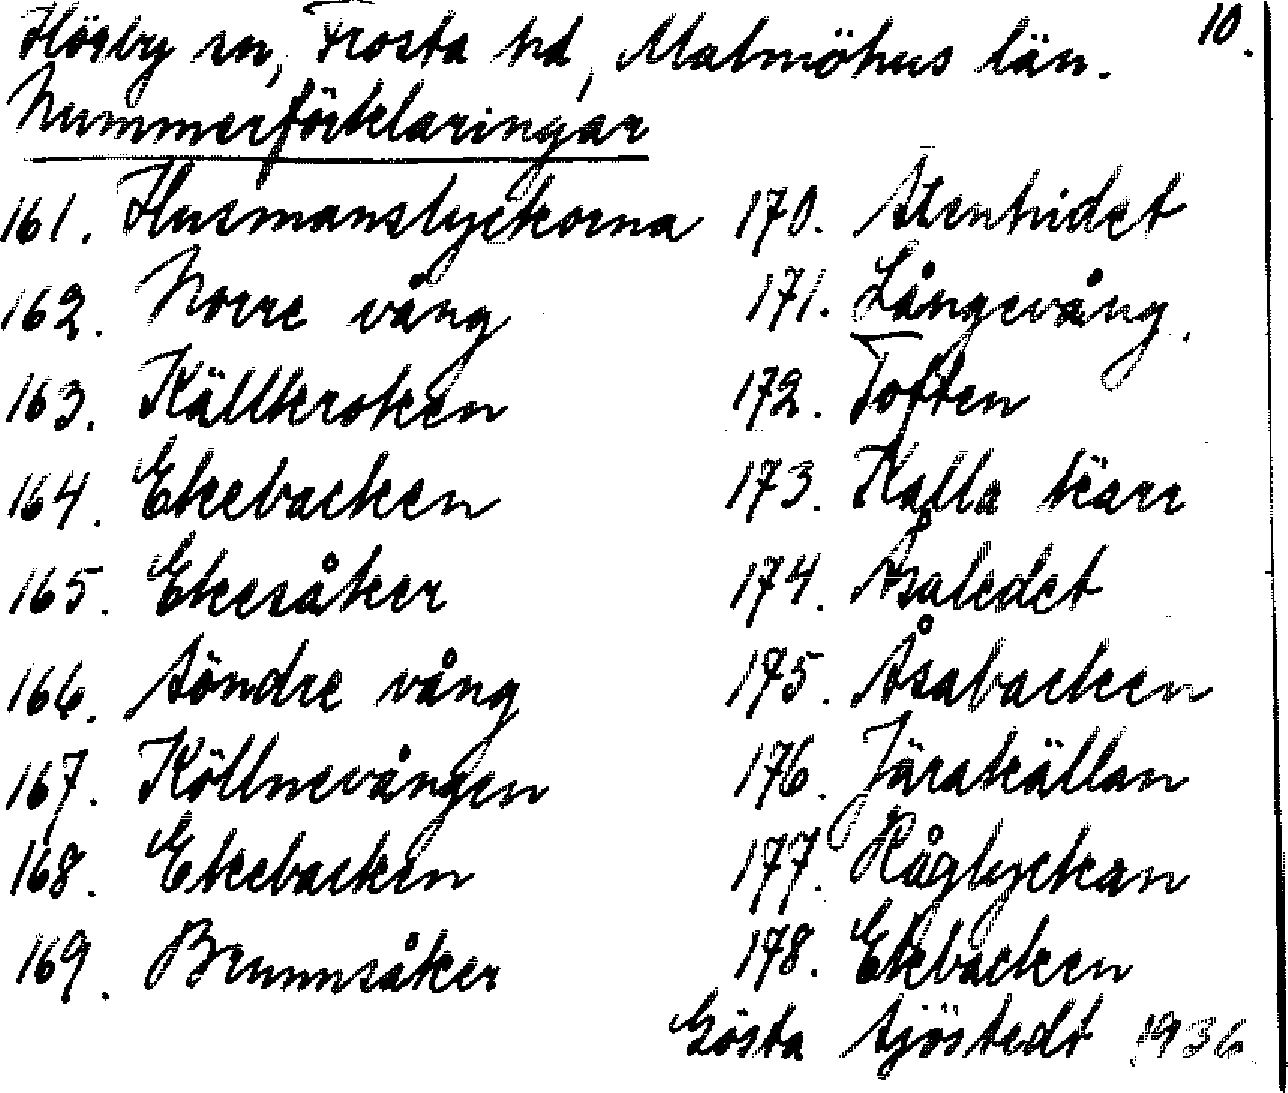 Hörby sn, Frosta hd, Malmöhus län. 10.
Nummerförklaringar
161. Husmanslyckorna
162. Norre vång
163. Källkroken
164. Ekebacken
165. Ekesåker
166. Söndre vång
167. Köllnevången
168. Ekebacken
169. Brunnsåker
170. Stenhidet
171. Långevång.
172. Toften
173. Kalla kärr
174. Åsaledet
175. Åsabacken
176. Järakällan
177. Råglyckan
178. Ekebacken
Gösta Sjöstedt 1936